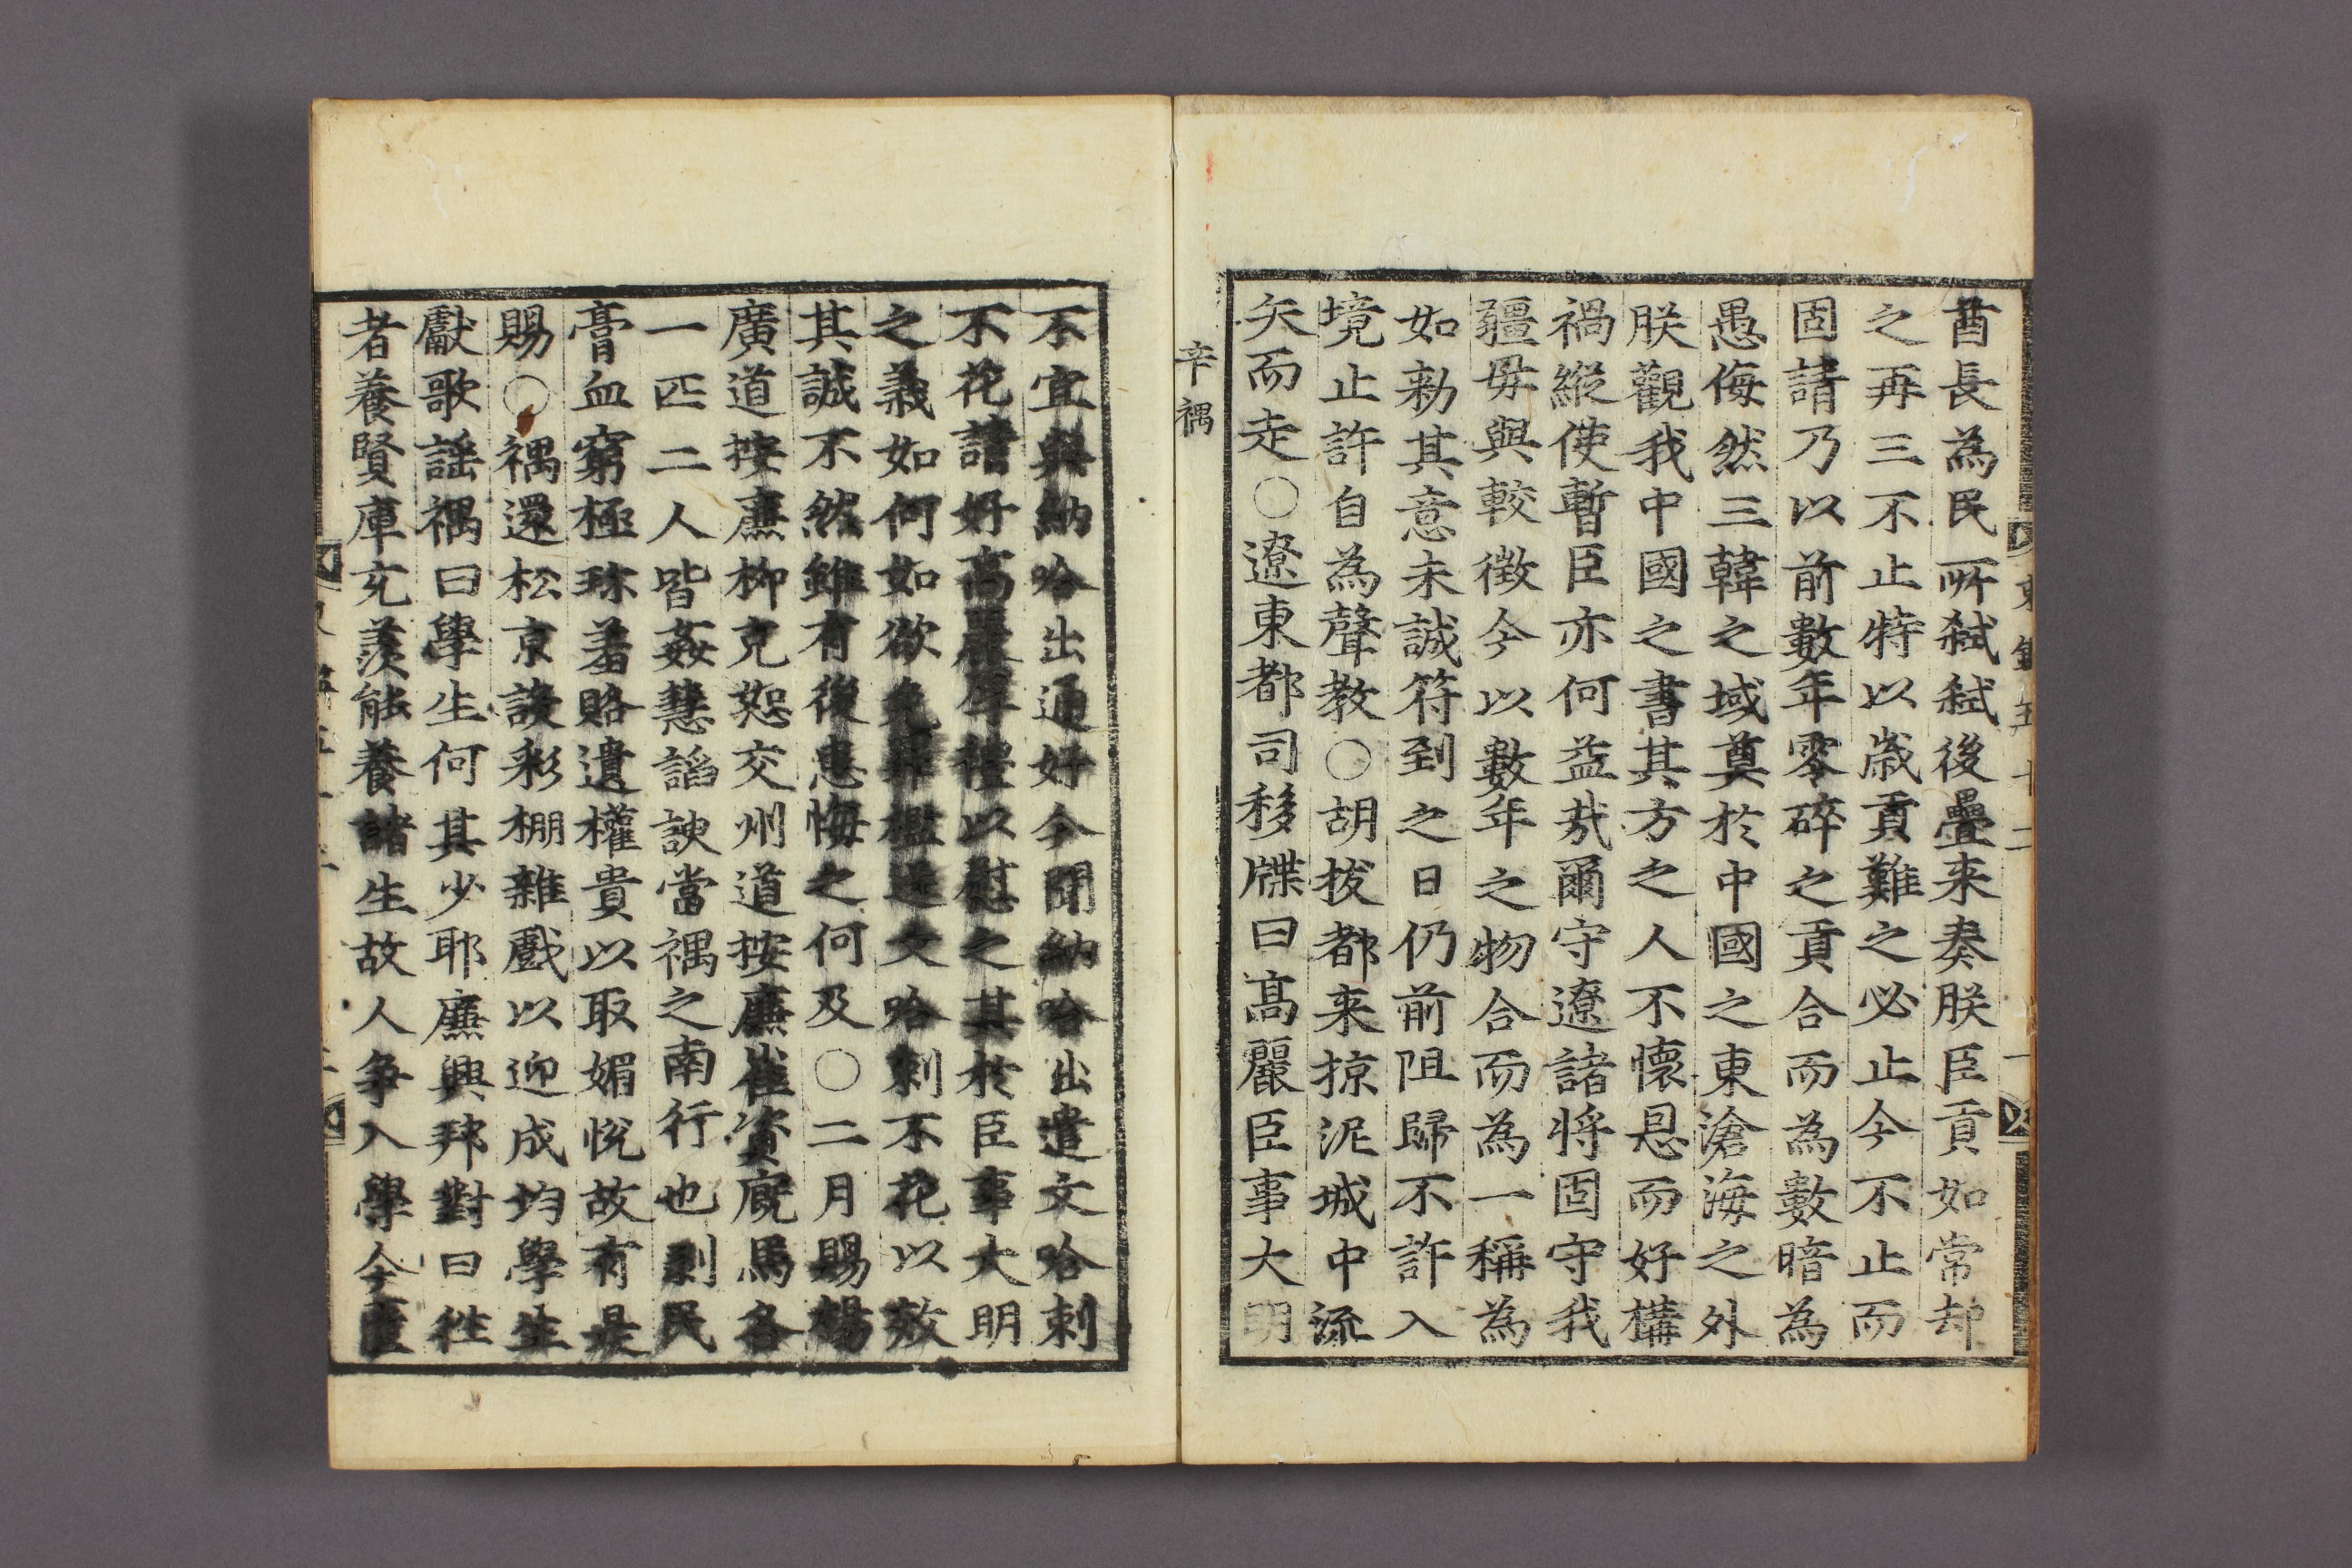 酋長為民所弑弑後疊来奏朕臣貢如常却
之再三不止特以歳貢難之必止今不止而
固請乃以前數年零碎之貢合而為數暗為
愚侮然三韓之域奠於中國之東滄海之外
朕觀我中國之書其方之人不懷恩而好構
禍縱使暫臣亦何益㢤爾守遼諸将固守我
疆毋與較徵今以數年之物合而為一稱為
如勑其意未誠符到之日仍前阻歸不許入
境止許自為聲教〇胡拔都来掠泥城中流
矢而走〇遼東都司移牒曰高麗臣事大明
辛禑
不宜與納哈出通好今聞納哈出遣文哈剌
不花請好高麗厚禮以慰之其於臣事大明
之義如何如欲免罪檻送文哈剌不花以效
其誠不然雖有後患悔之何及〇二月賜楊
廣道按廉柳克恕交州道按廉崔資廐馬各
一匹二人皆姦慧謟諛當禑之南行也剥民
膏血窮極珎羞賂遺權貴以取媚悅故有是
賜〇禑還松京設彩棚雜戲以迎成均學生
獻歌謡禑曰學生何其少耶廉興邦對曰徃
者養賢庫充羨能養諸生故人争入學今匱